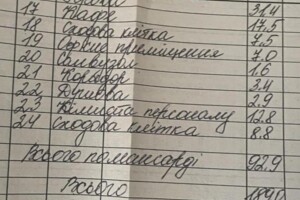 17 Кафе 31,4
18 Сходова клітка 17.5
19 приміщення 7.5
20 Санвузол 7.0
21 Коридор 1.6
22 Душова 3.4
23 Кімната персоналу 2.9
24 Сходова клітка 12.8
8.8
Всього по мансарді 92,9
Всього